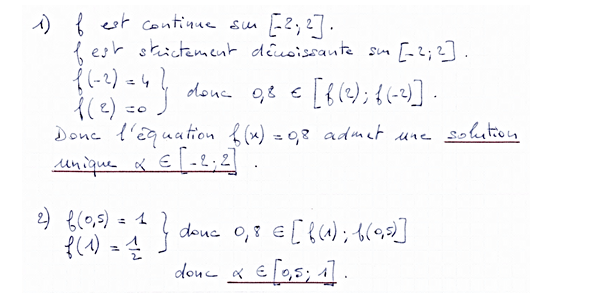 1) f est continue sur [-2;2].
f est strictement décroissante sur [-2;2].
f(-2) = 4
f(2) = 0 } donc 0,8 ∈ [f(2); f(-2)].
Donc l'équation f(x) = 0,8 admet une solution
unique α ∈ [-2;2].
2) f(0,5) = 1
f(1) = 1/2 } donc 0,8 ∈ [f(1); f(0,5)]
donc α ∈ [0,5; 1].